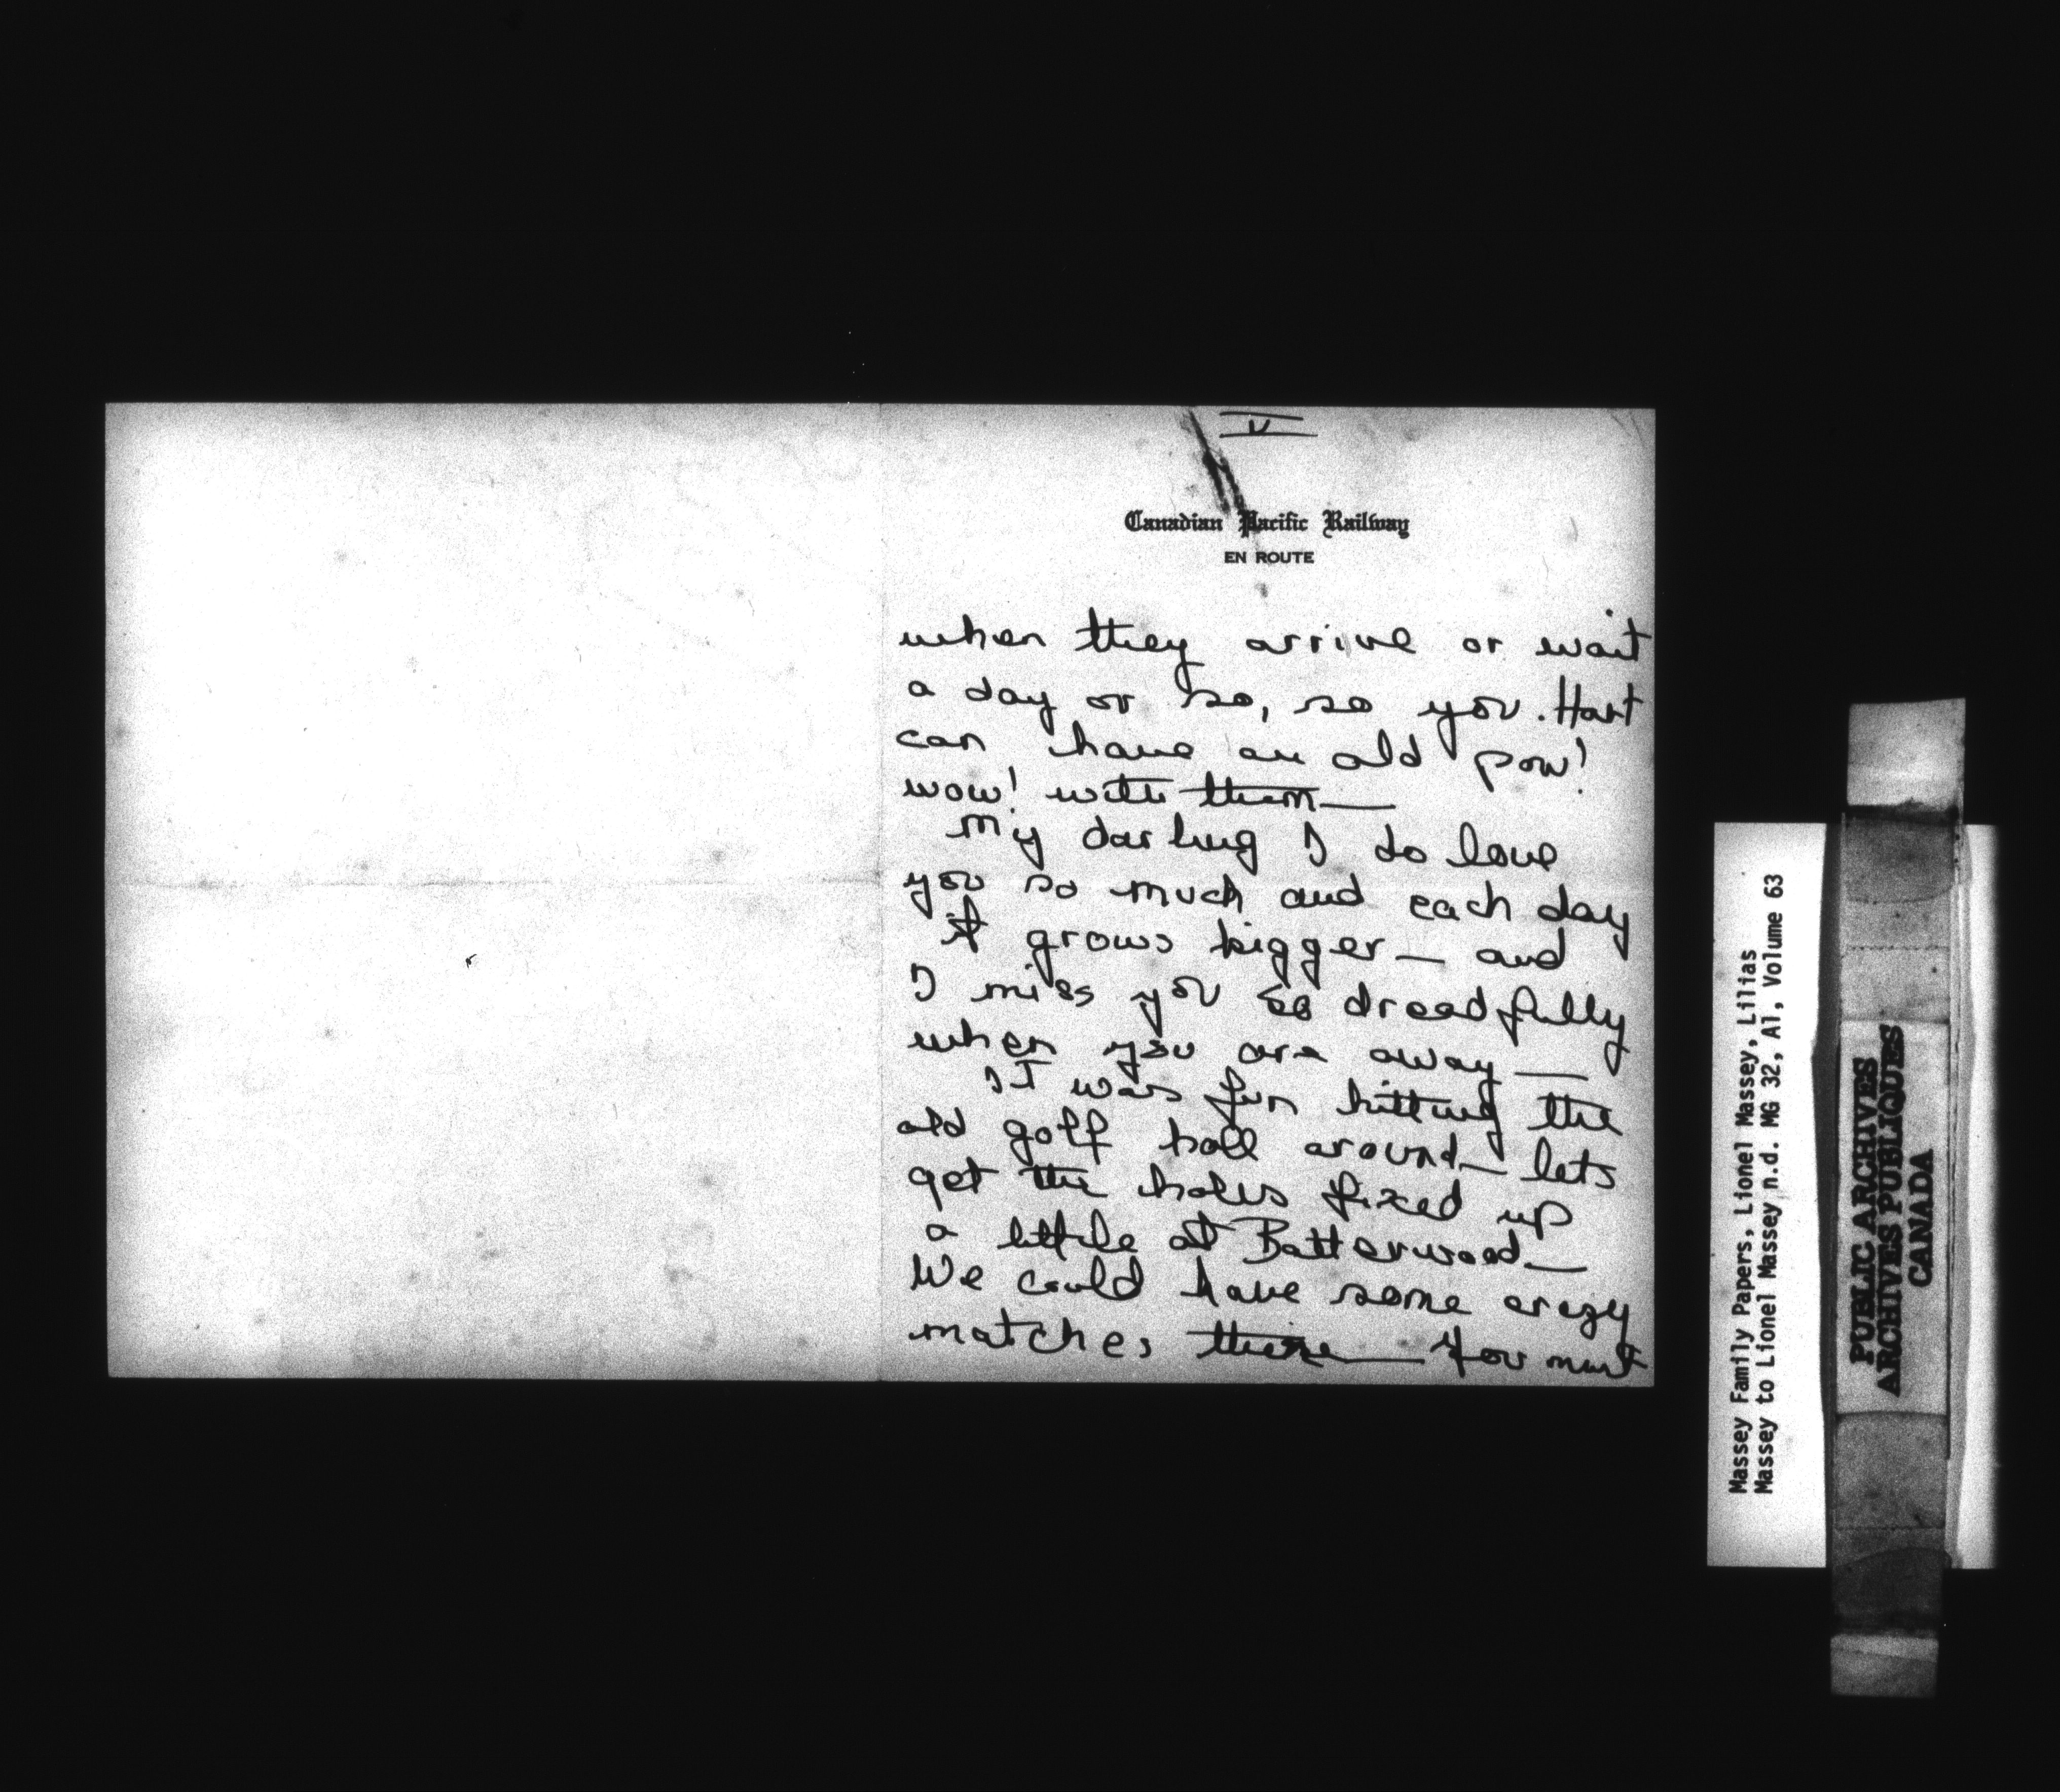 V
Canadian Pacific Railway
EN ROUTE
when they arrive or wait
a day or so, so you . Hart
can have an old pow!
wow! with them —
My darling I do love
you so much and each day
it grows bigger — and
I miss you so dreadfully
when you are away —
It was fun hitting the
old golf ball around — lets
get the holes fixed up
a little at Batterwood —
We could have some crazy
matches there — You must
Massey Family Papers, Lionel Massey, Lilias
Massey to Lionel Massey n.d. MG 32, A1, Volume 63
PUBLIC ARCHIVES
ARCHIVES PUBLIQUES
CANADA